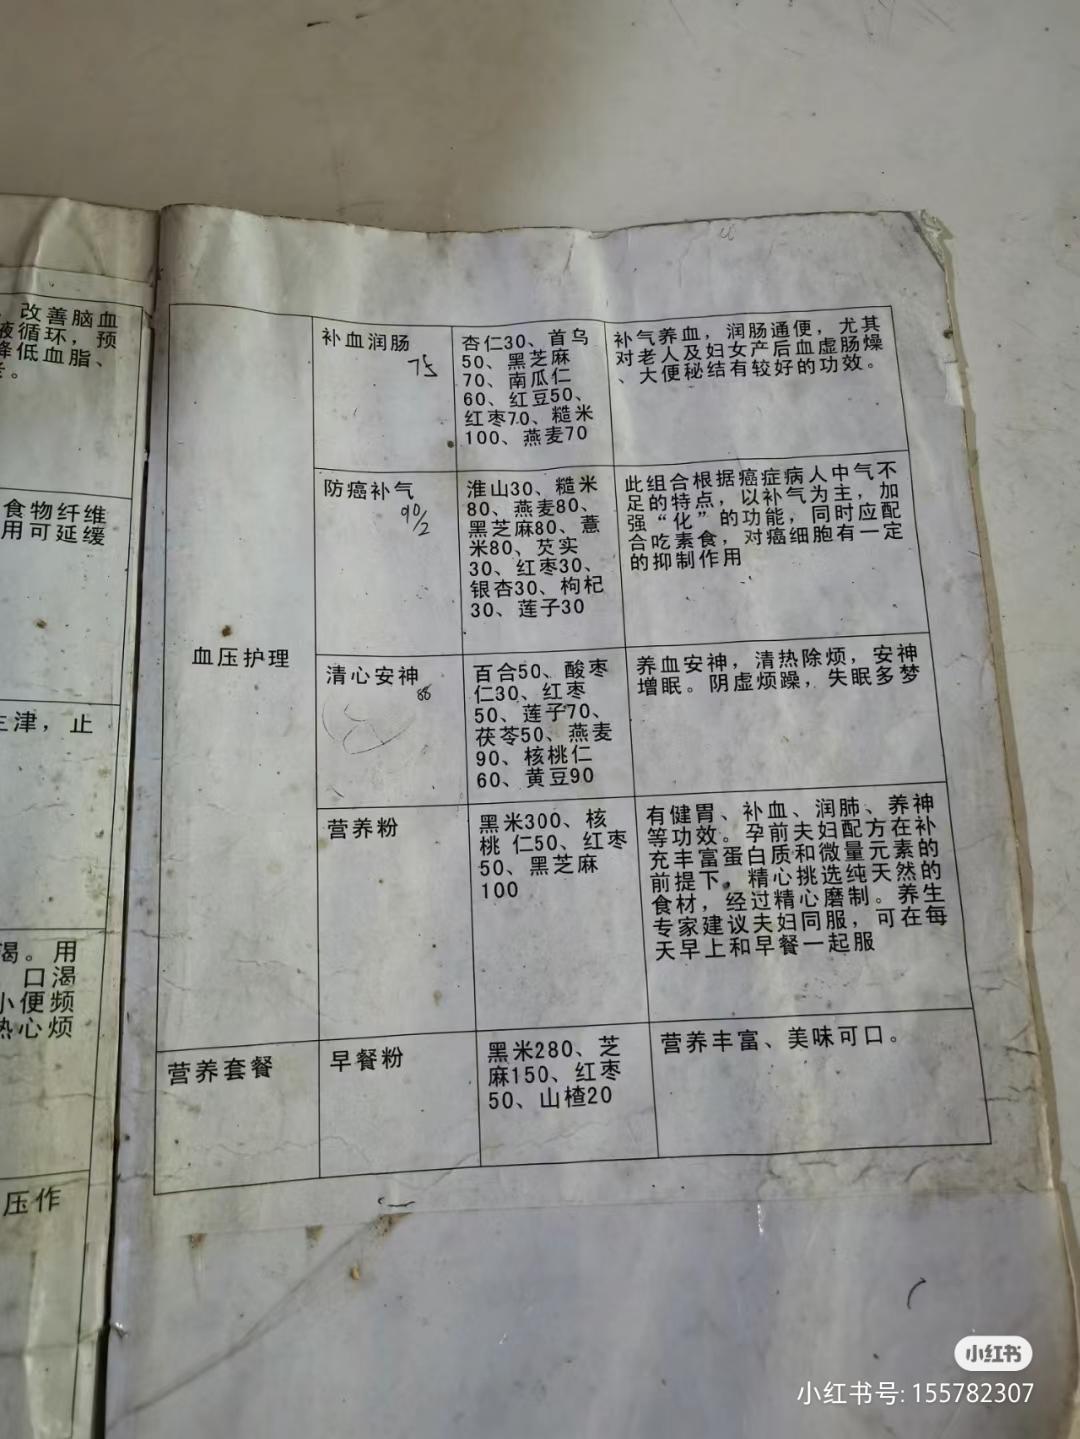 、改善脑血
液循环，预
降低血脂、
。
食物纤维
用可延缓
生津，止
渴。用
口渴
小便频
热心烦
压作
血压护理
补血润肠
75
杏仁30、首乌
50、黑芝麻
70、南瓜仁
60、红豆50、
红枣70、糙米
100、燕麦70
补气养血，润肠通便，尤其
对老人及妇女产后血虚肠燥
、大便秘结有较好的功效。
防癌补气
90/2
淮山30、糙米
80、燕麦80、
黑芝麻80、薏
米80、芡实
30、红枣30、
银杏30、枸杞
30、莲子30
此组合根据癌症病人中气不
足的特点，以补气为主，加
强“化”的功能，同时应配
合吃素食，对癌细胞有一定
的抑制作用
清心安神
88
百合50、酸枣
仁30、红枣
50、莲子70、
茯苓50、燕麦
90、核桃仁
60、黄豆90
养血安神，清热除烦，安神
增眠。阴虚烦躁，失眠多梦
营养粉
黑米300、核
桃 仁50、红枣
50、黑芝麻
100
有健胃、补血、润肺、养神
等功效。孕前夫妇配方在补
充丰富蛋白质和微量元素的
前提下，精心挑选纯天然的
食材，经过精心磨制。养生
专家建议夫妇同服，可在每
天早上和早餐一起服
营养套餐
早餐粉
黑米280、芝
麻150、红枣
50、山楂20
营养丰富、美味可口。
小红书
小红书号: 155782307